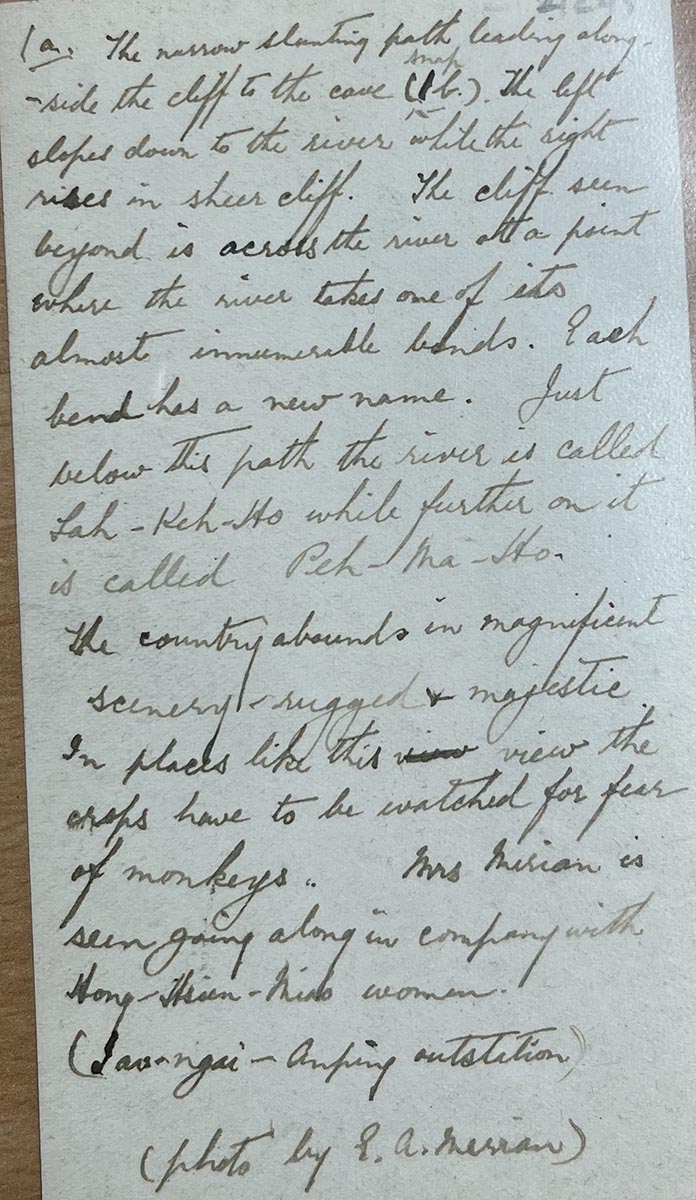 1a. The narrow slanting path leading along-
-side the cliff to the cave (snap 1b.). The left
slopes down to the river while the right
rises in sheer cliff. The cliff seen
beyond is across the river at a point
where the river takes one of its
almost innumerable bends. Each
bend has a new name. Just
below this path the river is called
Lah-Keh-Ho while further on it
is called Peh-Ma-Ho.
The country abounds in magnificent
scenery - rugged & majestic
In places like this view view the
crops have to be watched for fear
of monkeys. Mrs Merian is
seen going along in company with
Hong-Hsien-Miao women.
(Iao-ngai - Anping outstation)
(photo by E. A. Merian)